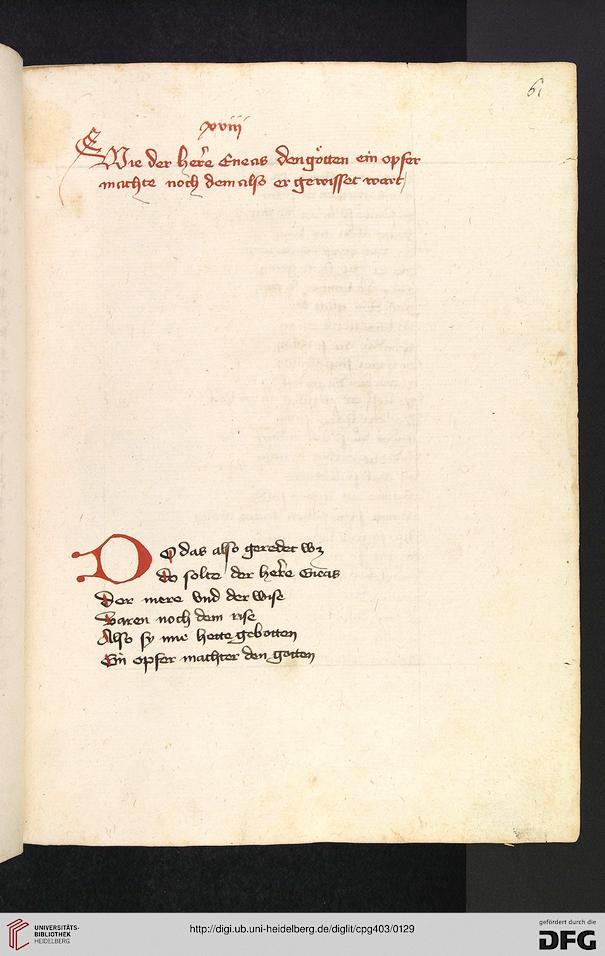 61
xviii
Wie der herre Eneas den götten ein opfer
machte noch dem also er gewisset wart
Do das also geredet wz
do solte der herre Eneas
Der mere vnd der wise
Varen noch dem rise
Also sy ime hette gebotten
Ein opfer machter den gotten
UNIVERSITÄTS-
BIBLIOTHEK
HEIDELBERG
http://digi.ub.uni-heidelberg.de/diglit/cpg403/0129
gefördert durch die
DFG